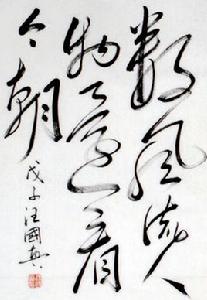 数风流人
物还看
今朝
戊子汪國真